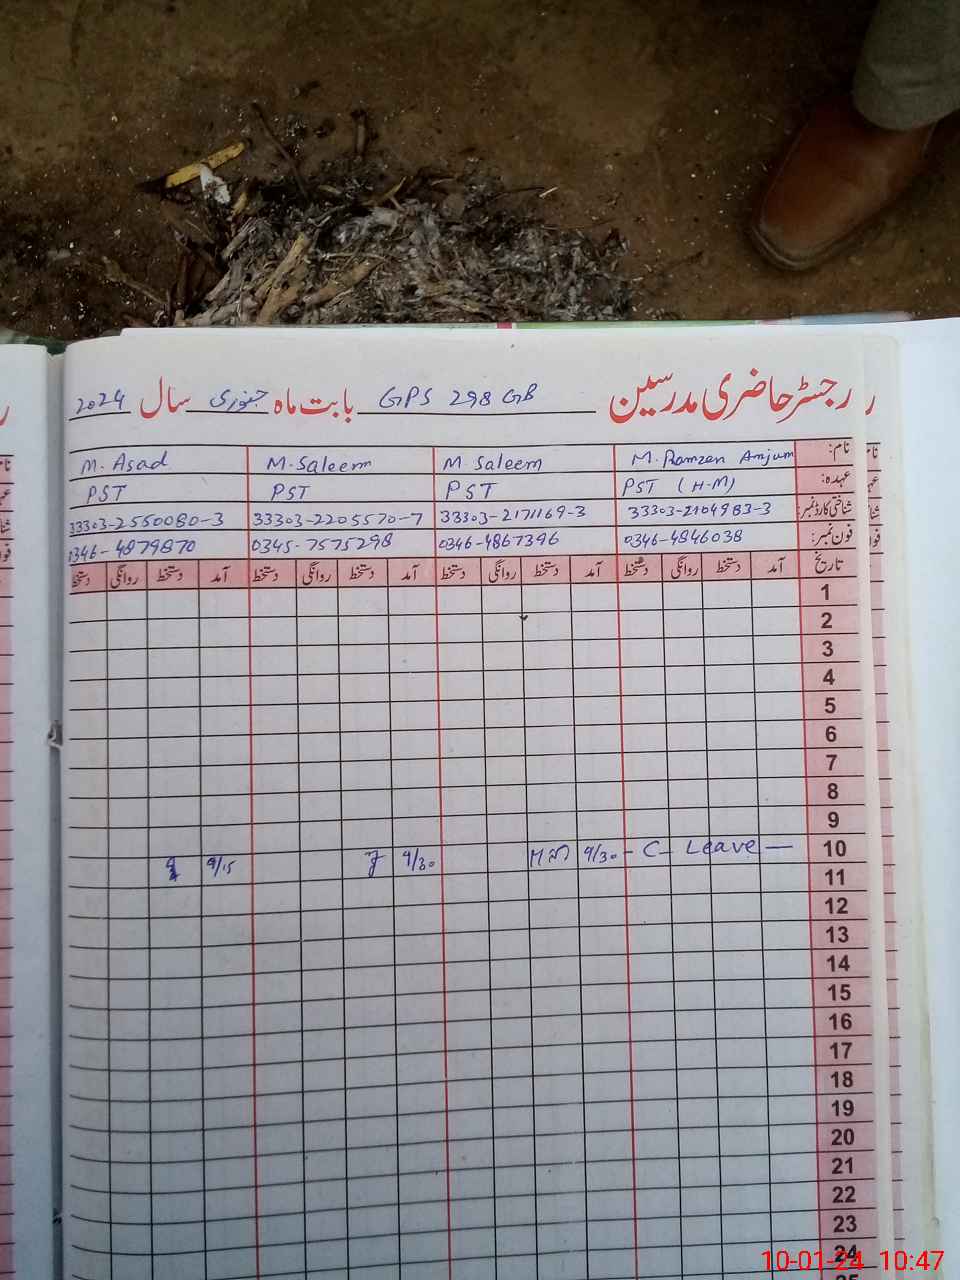 رجسٹر حاضری مدرسین GPS 298 GB بابت ماہ جنوری سال 2024
نام: M. Ramzen Anjum M. Saleem M. Saleem M. Asad
عہدہ: PST (H-M) PST PST PST
شناختی کارڈ نمبر: 33303-2104983-3 33303-2171169-3 33303-2205570-7 33303-2550080-3
فون نمبر: 0346-4846038 0346-4867396 0345-7575298 0346-4879870
تاریخ آمد دستخط روانگی دستخط آمد دستخط روانگی دستخط آمد دستخط روانگی دستخط آمد دستخط روانگی دستخط
1
2
3
4
5
6
7
8
9
10 - C- Leave - 9/30 9/30 9/15
11
12
13
14
15
16
17
18
19
20
21
22
23
24
10-01-24 10:47